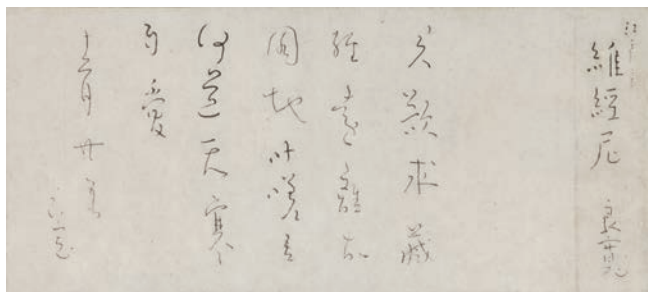 江戸
維經尼 良寛
君欲求藏
經遠離故
園地吁嗟吾
何道天寒
自愛
十二月廿五
良寛